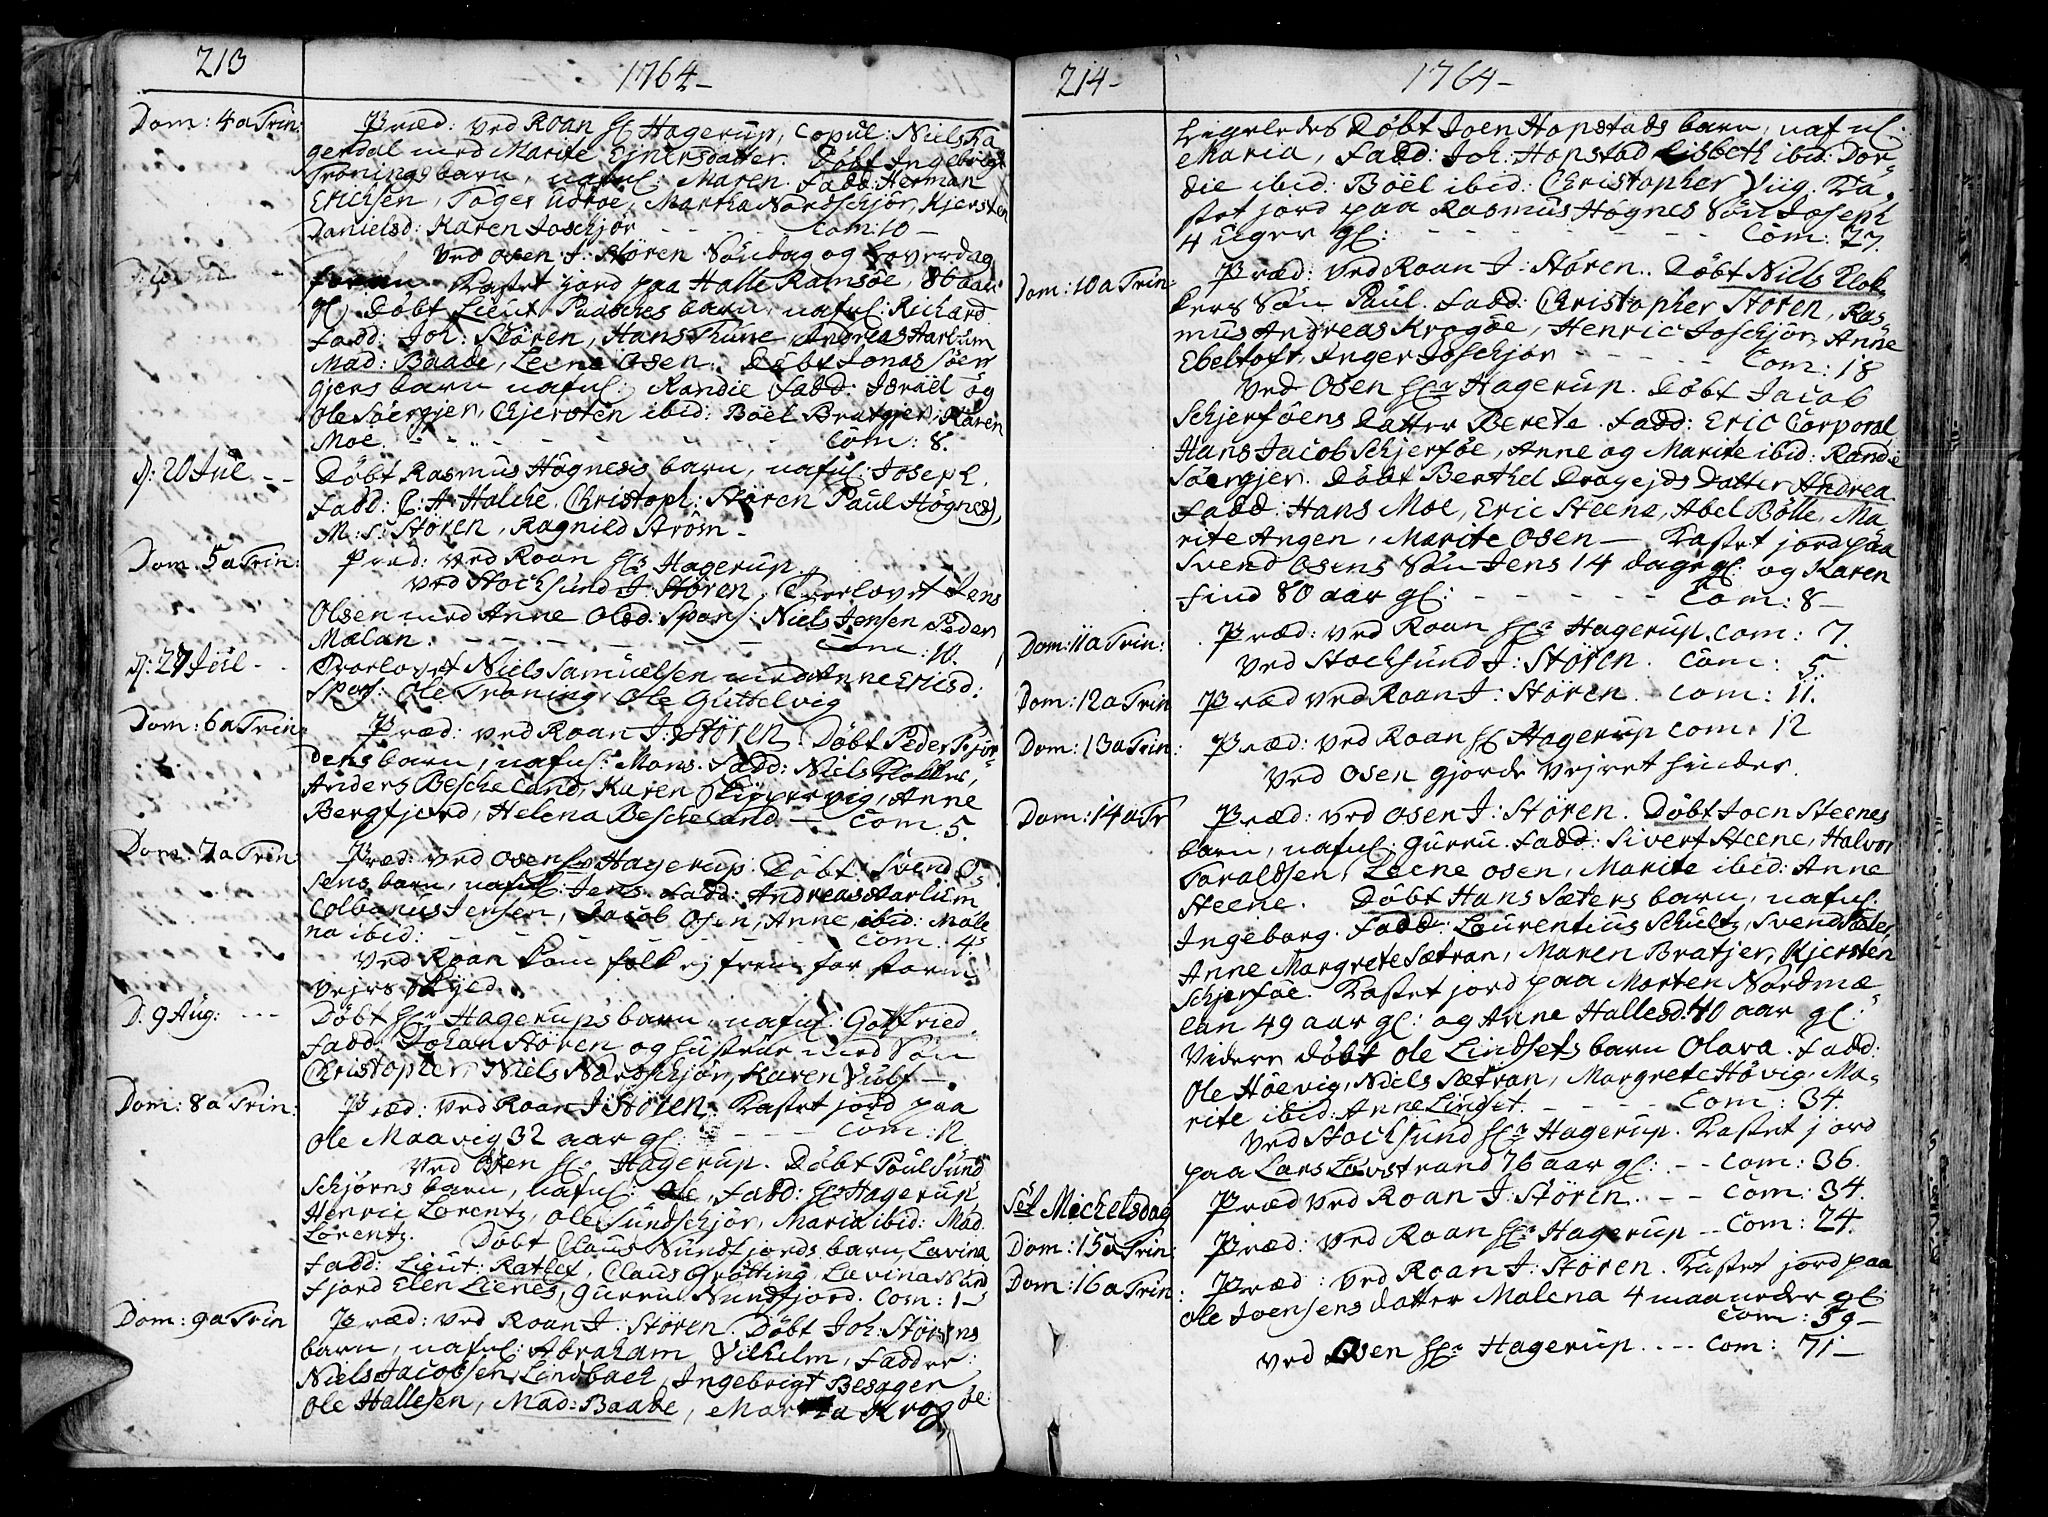 213
1764-
Dom: 4 a Trin: Præd: ved Roan Hr Hagerup, Copul: Niels Ha
gendal med Marite Ejnersdatter. Døbt Ingebrigt
Trønings barn, nafnl: Maren. Fadd: Herman
Erichsen, Tøger Udroe, Martha Nordschjør, Kjersten
Danielsd: Karen Joschjør - - - - Com: 10 -
Ved Osen J: Støren Søndag og Loverdag
Kastet jord paa Halle Ramsøe, 86 aar
gl. Døbt Lieut Paasches barn, nafnl: Richard
Fadd: Joh: Støren, Hans Thune Andreas Harlum
Mad: Baade, Leene Osen. Døbt Jonas Søer
gjers barn nafnl: Randie Fadd: Israël og
Ole Søergjer, Chjersten ibid: Boël Bratgjer, Karen
Moe. - - - - - - Com: 8.
D: 20 Jul - - Døbt Rasmus Høgneses barn, nafnl: Joseph.
Fadd: C: A: Halche, Christoph: Støren Paul Høgnes,
M: S: Støren, Ragnild Strøm -
Dom. 5 a Trin: Præd: ved Roan Hr: Hagerup.
Ved Stocksund J: Støren, Trolovet Jens
Olsen med Anne Olsd: Spons: Niels Jensen Peder
Mælan. - - - - - Com: 10.
D: 27 Jul - - Trolovet Niels Samuelsen med Anne Ericsd:
Spons: Ole Trøning, Ole Guttelvig
Dom: 6 a Trin: Præd: ved Roan J: Støren. Døbt Peder Fjor
dens barn, nafnl: Mons. Fadd: Niels Klokker,
Anders Bescheland, Karen Skjervig, Anne
Bergfjord, Helena Bescheland - Com: 5.
Dom: 7 a Trin Præd: ved Osen Hr Hagerup. Døbt Svend O
sens barn, nafnl: Jens. Fadd: Andreas Harlum
Colbanus Jensen, Jacob Osen, Anne ibid: Male
na ibid: - - - - - - Com: 4.
Ved Roan kom folk ej frem for storm
vejrs skyld.
D. 9 Aug: - - - Døbt Hr Hagerups barn, nafnl: Gotfried.
Fadd: Johan Støren og hustrue med Søn
Christopher, Niels Nordschjør, Karen Vulf -
Dom: 8 a Trin: Præd: ved Roan J: Støren. Kastet jord paa
Ole Maavig 32 aar gl: - - - Com: 12.
Ved Osen Hr: Hagerup. Døbt Poul Sund
Schjørns barn, nafnl: Ole, Fadd: Hr Hagerup
Henric Lorentz, Ole Sundschjør, Maria ibid: Mad.
Lorentz. Døbt Claus Nundfjords barn Lavina
Fadd: Lieut: Ratlef, Claus Grøtting, Lavina Nund
fjord Elen Lienes, Gurru Nundfjord. Com: 1-
Dom: 9 a Trin Præd: ved Roan J: Støren. Døbt Joh: Størens
barn, nafnl: Abraham Vilhelm, Faddere:
Niels Jacobsen Lindbach, Ingebrigt Besager
Ole Hallesen, Mad: Baade, Martha Krogøe:
214-
1764-
Ligeledes Døbt Joen Hopstads barn, nafnl:
Maria, Fadd: Joh: Hopstad Lisbeth ibid: Dor
die ibid: Boël ibid: Christopher Viig. Ka
stet jord paa Rasmus Høgnes Søn Joseph
4 uger gl: - - - - - - Com: 27.
Dom: 10 a Trin: Præd: ved Roan J: Støren. Døbt Niels Klok
kers Søn Paul. Fadd: Christopher Støren, Ras
mus Andreas Krogøe, Henric Joschjør, Anne
Ebeltoft, Inger Joschjør - - - - Com: 18
Ved Osen Hr: Hagerup. Døbt Jacob
Schjerføens Datter Berete. Fadd: Eric Corporal
Hans Jacob Schjerføe, Anne og Marite ibid: Randie
Søergjer. Døbt Berthel Dragejds Datter Andrea.
Fadd: Hans Moe, Eric Steene, Abel Bølle, Ma
rite Angen, Marite Osen - Kastet jord paa
Svend Osens Søn Jens 14 dage gl: og Karen
Find 80 aar gl: - - - - - Com: 8 -
Dom: 11 a Trin: Præd: ved Roan Hr: Hagerup. Com: 7.
Ved Stochsund J: Støren. Com: 5
Dom: 12 a Trin Præd ved Roan J: Støren. Com: 11.
Dom: 13 a Trin: Præd: ved Roan Hr Hagerup Com: 12
Ved Osen gjorde Vejret hinder.
Dom: 14 a Tr Præd: ved Osen J: Støren. Døbt Joen Steenes
barn, nafnl: Gurru. Fadd: Sivert Steene, Halvor
Taraldsen, Leene Osen, Marite ibid: Anne
Steene. Døbt Hans Sæters barn, nafnl.
Ingeborg. Fadd: Laurentius Schultz, Svend Sæter,
Anne Margrete Sætran, Maren Bratjer, Kjersten
Schjerføe. Kastet jord paa Morten Nordmæ
lan 49 aar gl: og Anne Hallesd: 40 aar gl:
Videre døbt Ole Lindsets barn Olava. Fadd:
Ole Høevig, Niels Sætran, Margrete Høvig, Ma
rite ibid: Anne Lindset. - - - - Com: 34.
Ved Stochsund Hr: Hagerup. Kastet jord
paa Lars Løvstrand 76 aar gl: - - Com: 36.
Sct Michelsdag Præd ved Roan J: Støren. - - Com: 34.
Dom: 15 a Trin: Præd: ved Roan Hr: Hagerup - - Com: 24.
Dom: 16 a Trin: Præd: ved Roan J: Støren. Kastet jord paa
Ole Joensens datter Malena 4 maaneder gl:
Com: 59 -
Ved Osen Hr: Hagerup. - - Com: 71 -